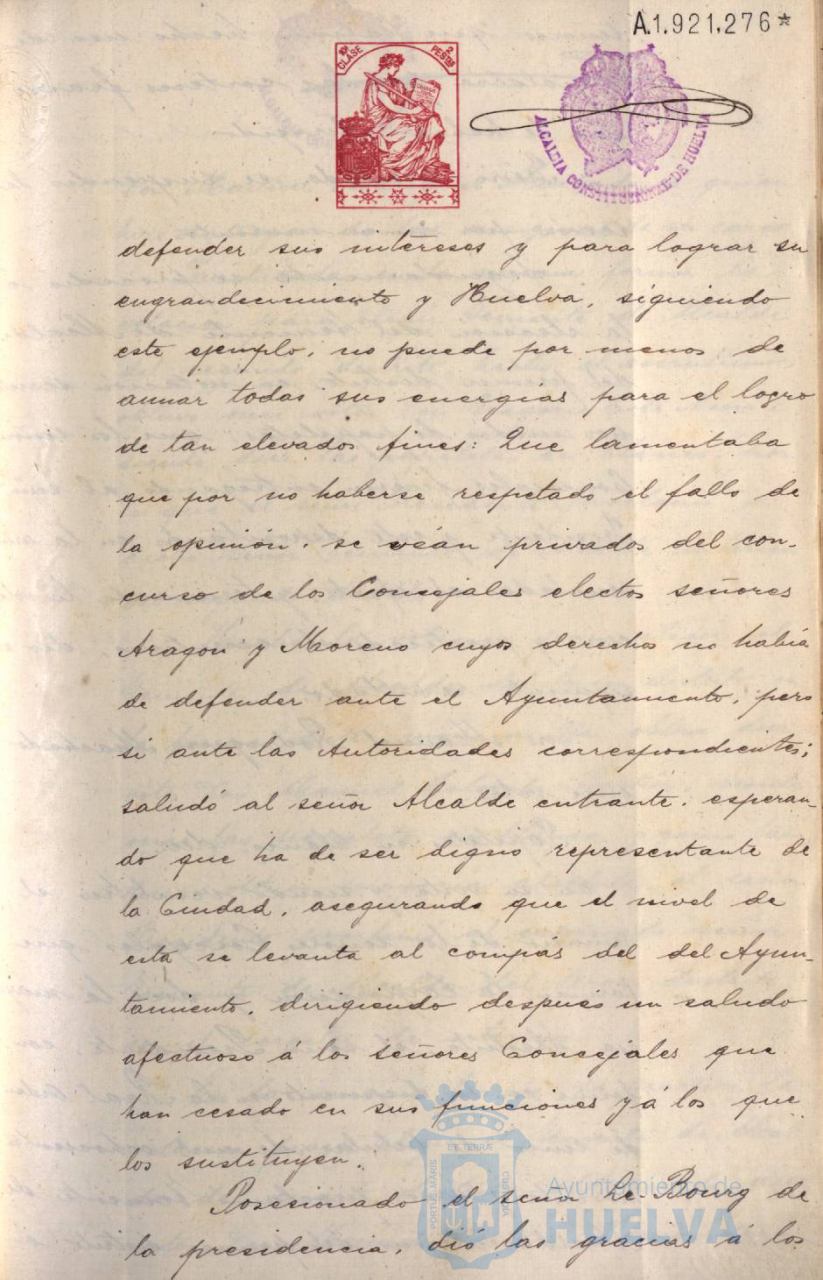 A.1.921,276*
10ª CLASE 2 PESTAS
ALCALDIA CONSTITUCIONAL DE HUELVA
defender sus intereses y para lograr su
engrandecimiento y Huelva, siguiendo
este ejemplo, no puede por menos de
aunar todas sus energías para el logro
de tan elevados fines: Que lamentaba
que por no haberse respetado el fallo de
la opinión, se véan privados del con-
curso de los Concejales electos señores
Aragón y Moreno cuyos derechos no había
de defender ante el Ayuntamiento, pero
si ante las Autoridades correspondientes;
saludó al señor Alcalde entrante, esperan-
do que ha de ser digno representante de
la Ciudad, asegurando que el nivel de
esta se levanta al compás del del Ayun-
tamiento, dirigiendo después un saludo
afectuoso á los señores Concejales que
han cesado en sus funciones y á los que
los sustituyen.
Posesionado el señor Le Bourg de
la presidencia, dió las gracias á los
PORTUS MARIS ET TERRÆ CUSTODIA
Ayuntamiento de
HUELVA